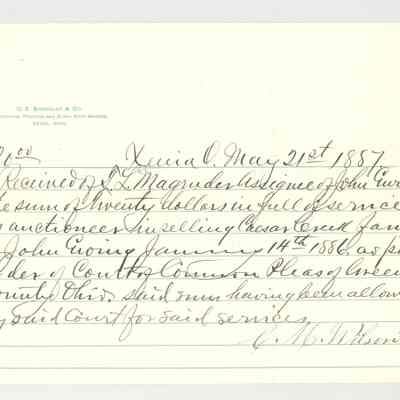 Xenia O. May 21st 1887
Received of J. L. Magruder Assignee of John Ewi
e sum of twenty dollars in full of service
auctioneer in selling Caesar Creek Far
John Ewing January 14th 1886. as p
der of Court of Common Pleas of Gree
ounty Ohio. said sum having been allow
y said Court for said services
C. M. Wilson